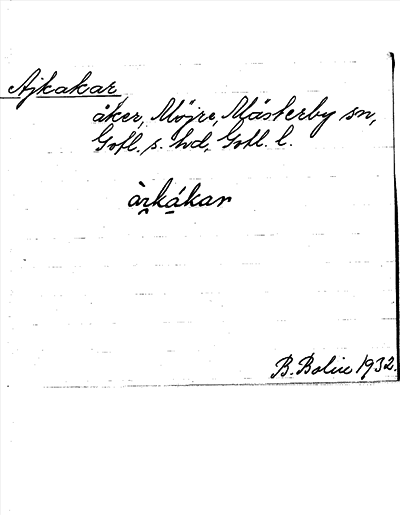 Ajkakar
åker, Möjre, Mästerby sn,
Gotl. s. hd, Gotl. l.
àṟká̱kar
B. Bolin 1932.